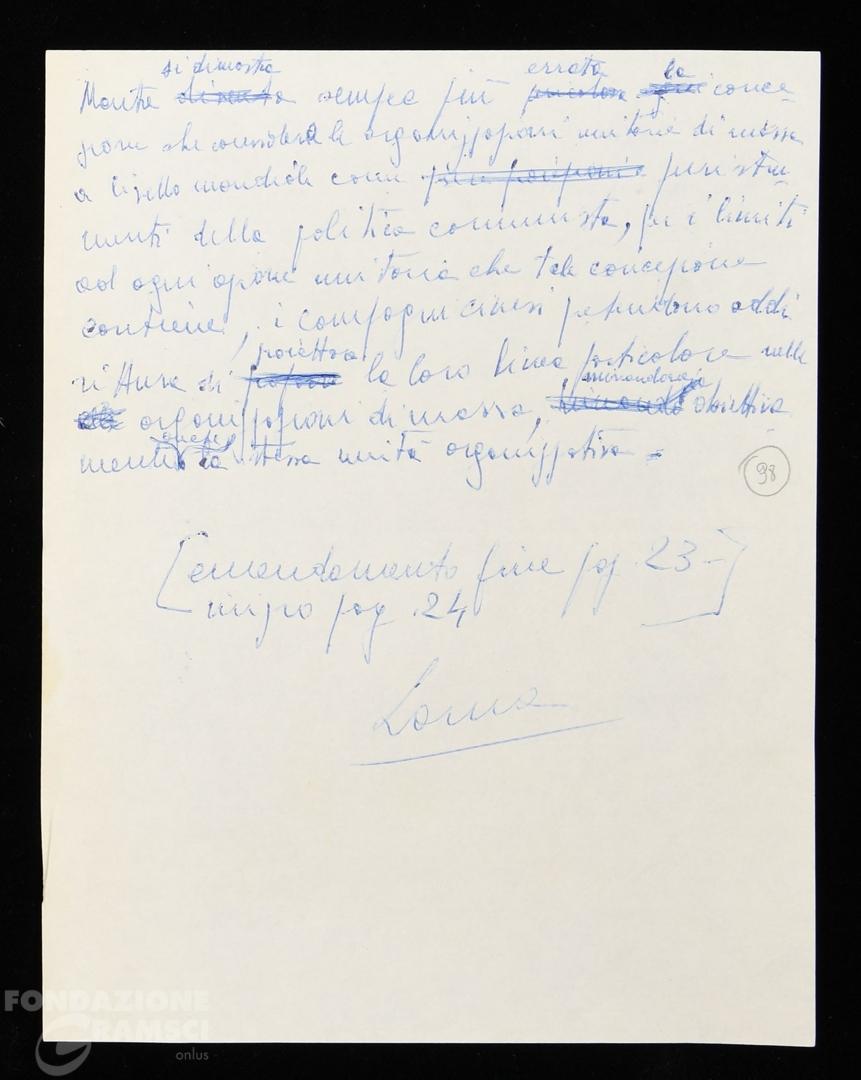 si dimostra errata la
Mentre diventa sempre più pericolosa ogni conce-
zione che considera le organizzazioni unitarie di massa
a livello mondiale come puri stru
menti della politica comunista, per i limiti
ad ogni azione unitaria che tale concezione
contiene, i compagni cinesi pretendono addi
proiettare
rittura di la loro linea particolare nelle
minandone
organizzazioni di massa, minando obiettiva
anche
mente la stessa unità organizzativa.
98
[emendamento fine pag. 23-
inizio pag. 24]
Lama
FONDAZIONE
GRAMSCI
onlus